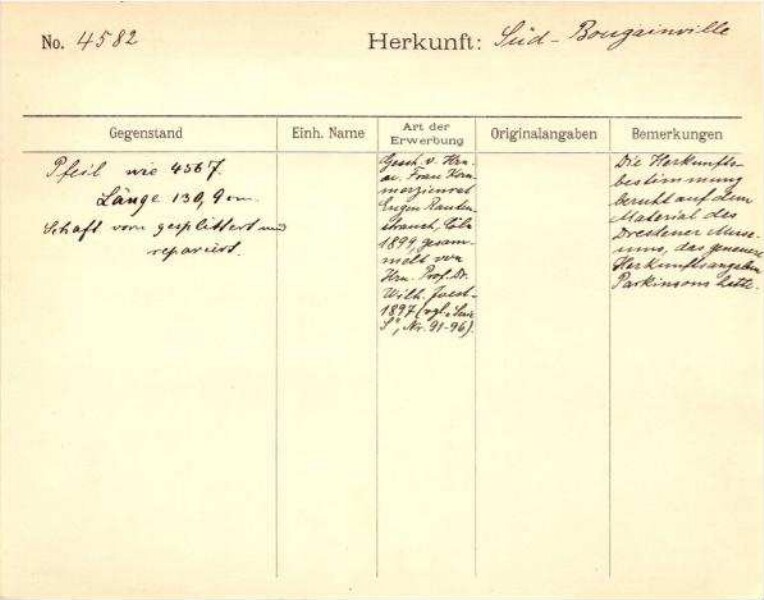 No. 4582
Herkunft: Süd - Bougainville
Gegenstand
Einh. Name
Art der
Erwerbung
Originalangaben
Bemerkungen
Pfeil wie 4567.
Länge 130,9 cm.
Schaft vorn gesplittert und
repariert.
Gesch. v. Hrn.
u. Frau Kom-
merzienrat
Eugen Rauten-
strauch, Cöln
1899, gesam-
melt von
Hrn. Prof. Dr.
Wilh. Joest
1897 (vgl. "Serie
S", Nr. 91-96).
Die Herkunfts-
bestimmung
beruht auf dem
Material des
Dresdener Muse-
ums, das genauere
Herkunftsangaben
Parkinsons hatte.